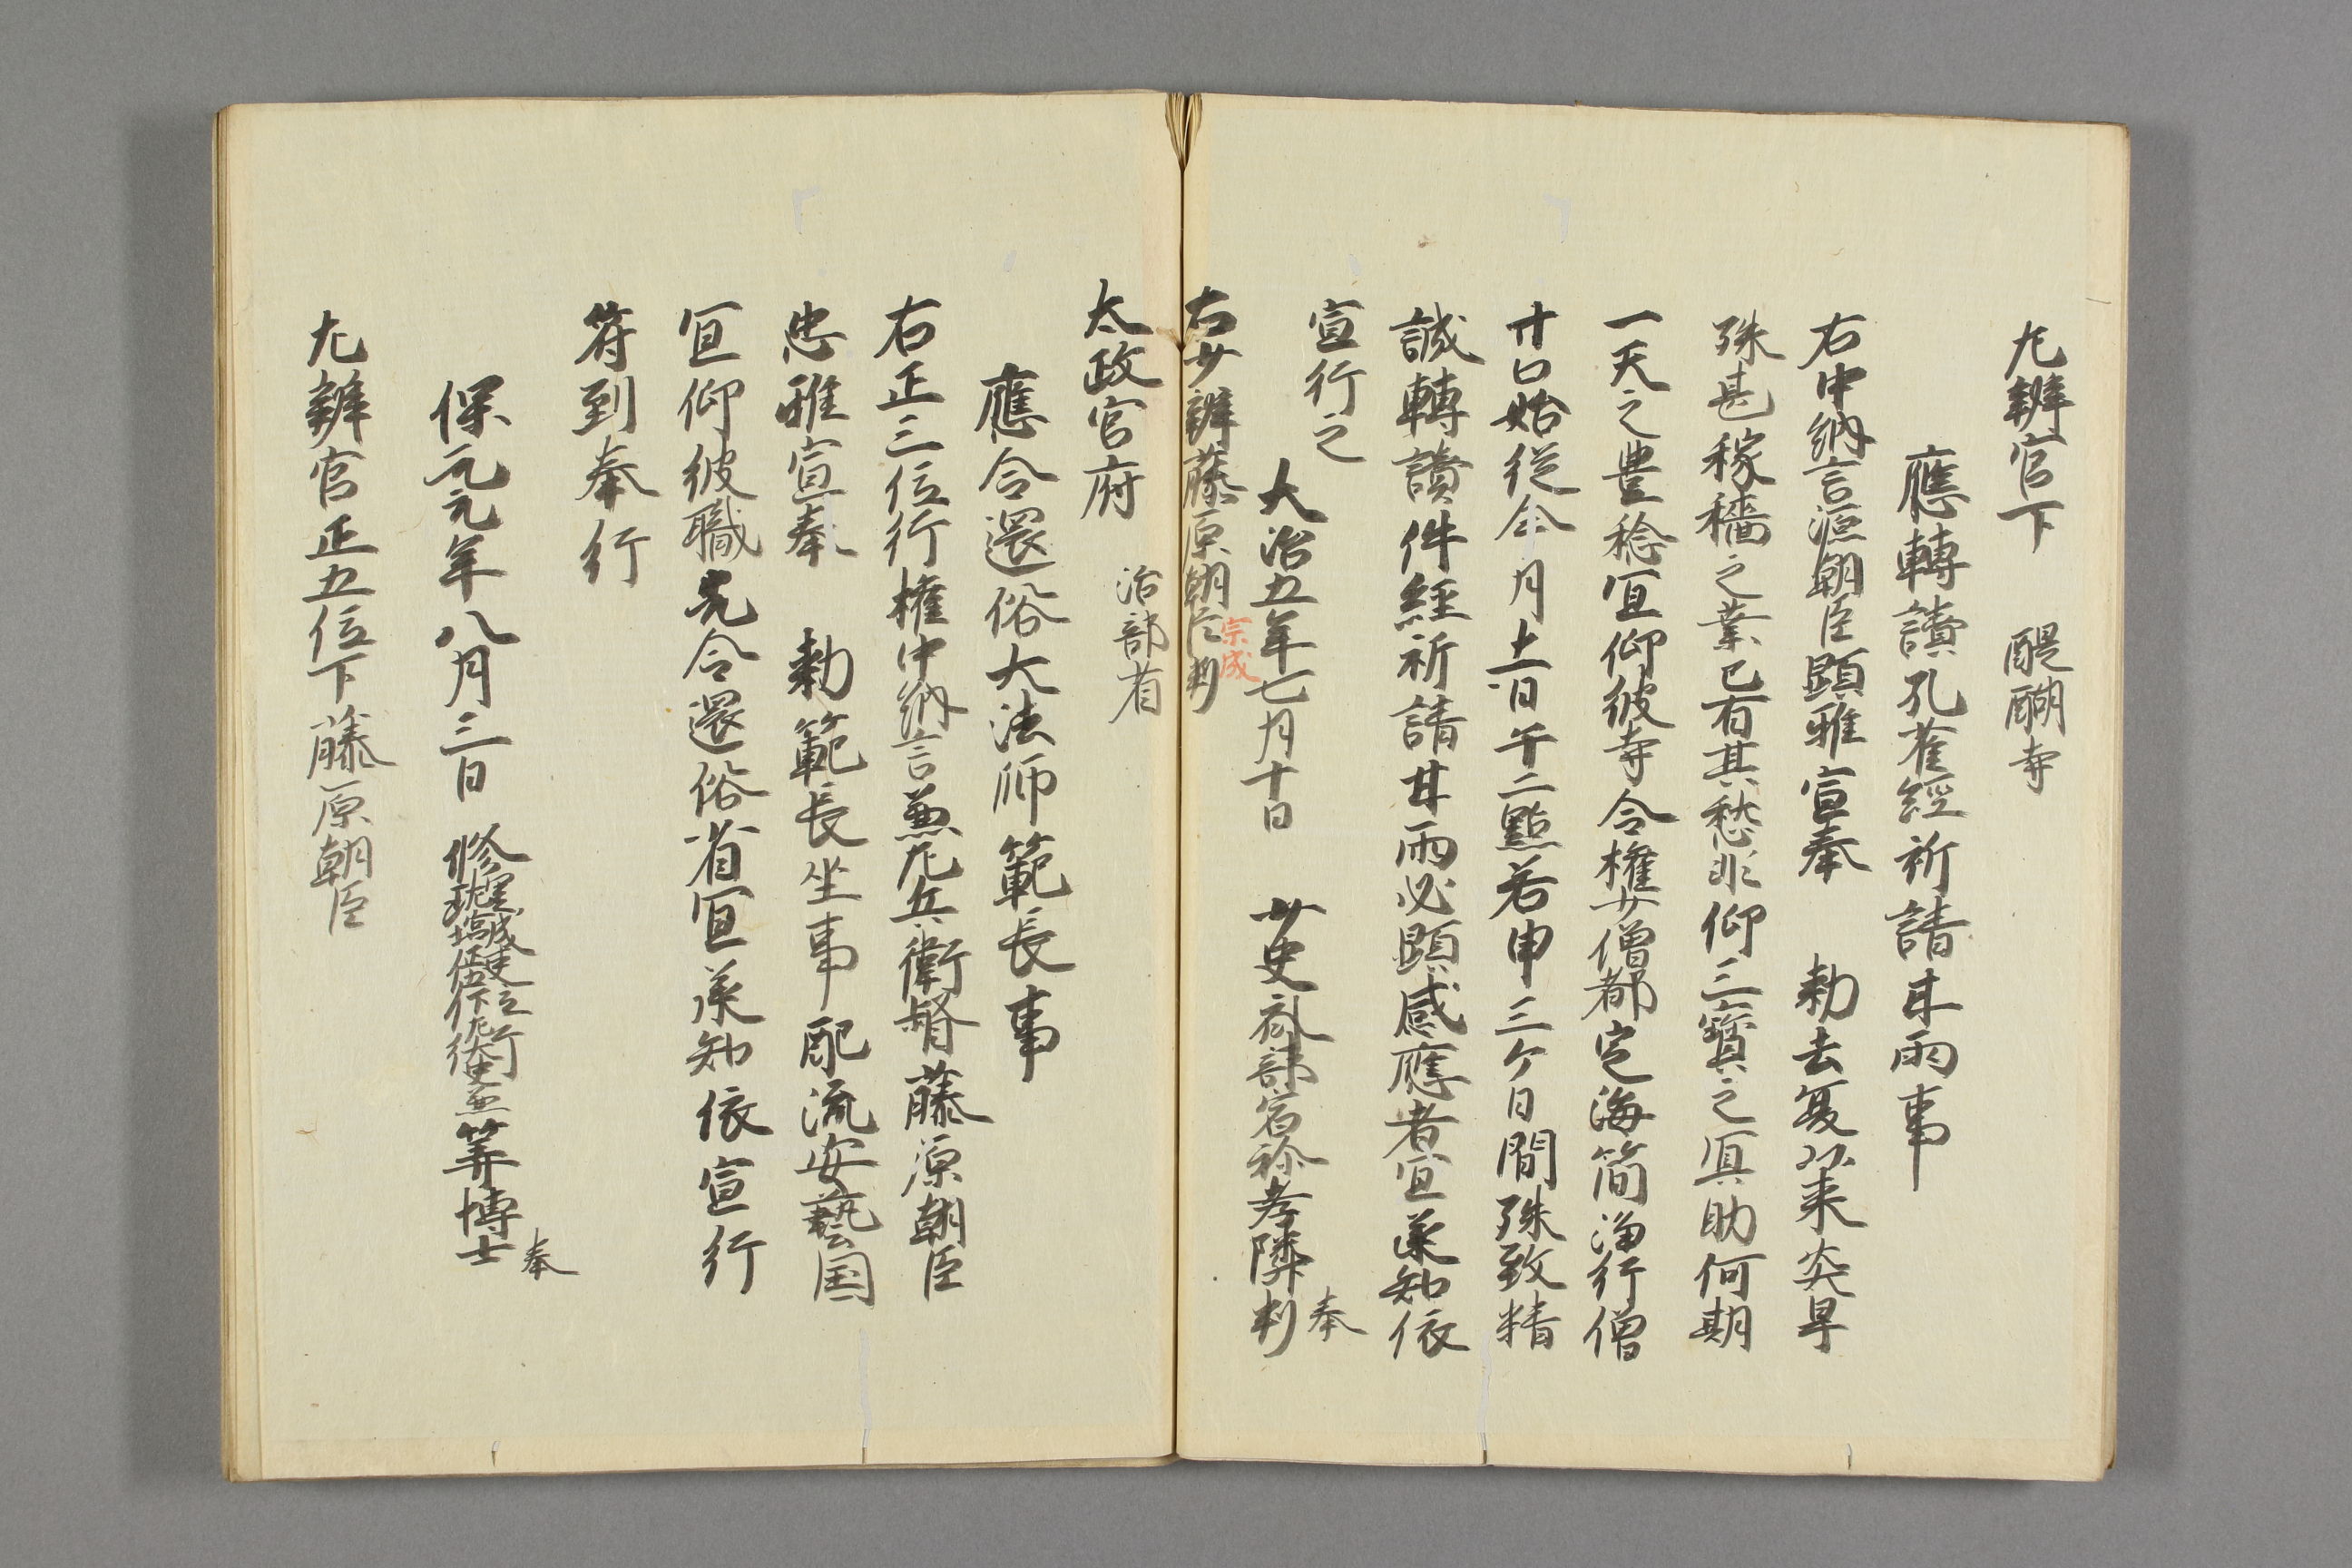 左辨官下　醍醐寺
應轉讀孔雀經祈請甘雨事
右中納言源朝臣顕雅宣奉　勅去夏以来炎旱
殊甚稼穡之業已有其愁非仰三寳之冥助何期
一天之豊稔宜仰彼寺令權少僧都定海簡浄行僧
廿口始従今月十一日午二點若申三ケ日間殊致精
誠轉讀件經祈請甘雨必顕感應者宜承知依
宣行之
大治五年七月十日　少史斎部宿祢孝隣判奉
右少辨藤原朝臣判
宗成
太政官府　治部省
應令還俗大法師範長事
右正三位行權中納言兼左兵衛督藤原朝臣
忠雅宣奉　勅範長坐事配流安藝国
宜仰彼職先令還俗省宜承知依宣行
符到奉行
保元元年八月三日　修理左宮城判官正五位下行左大史兼筭博士奉
左辨官正五位下藤原朝臣